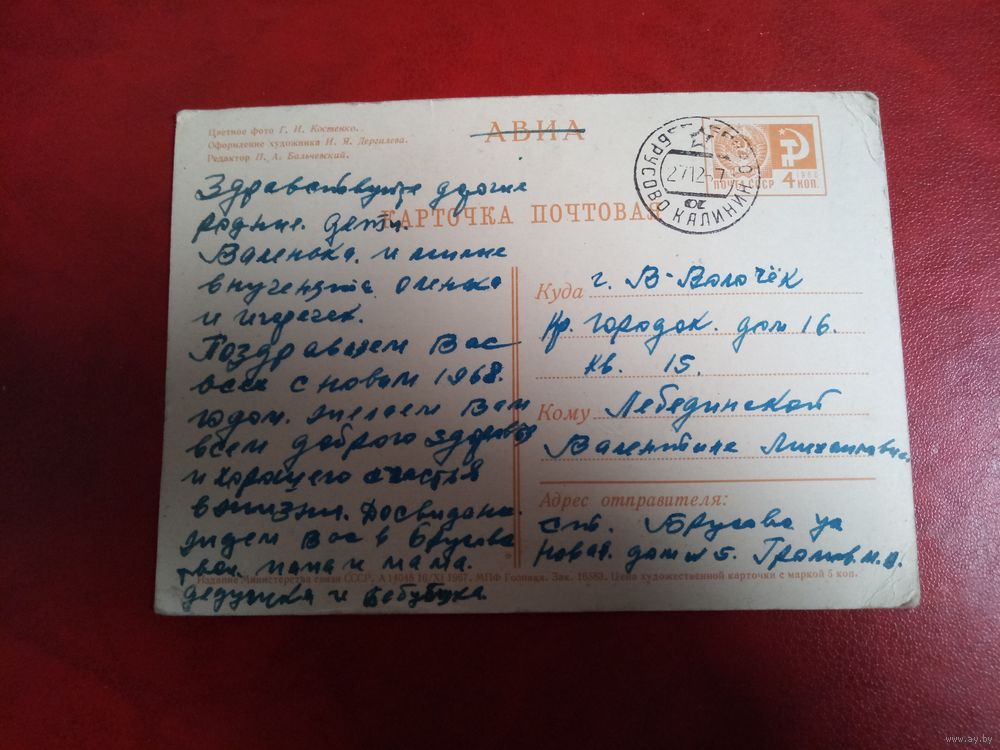 Цветное фото Г. И. Костенко.
Оформление художника И. Я. Дергилева.
Редактор П. А. Бальчевский.
АВИА
БРУСОВО КАЛИНИН
27 12
1966
ПОЧТА СССР 4 КОП.
КАРТОЧКА ПОЧТОВАЯ
Здравствуйте дорогие
родные. дети.
Валенька. и милые
внученята оленька
и игоречек.
Поздравляем Вас
всех с новым 1968.
годом. желаем Вам
всем доброго здоровья
и хорошего счастья
в жизни. Досвидание.
ждем Вас в Брусово
твои папа и мама.
дедушка и бабушка.
Куда г. В-Волочёк
Кр. городок. дом 16.
кв. 15.
Кому Лебединской
Валентине Михаиловне.
Адрес отправителя:
ст. Брусово ул
Новая. дом №5. Громов. М. А.
Издание Министерства связи СССР. А 14048 16/XI 1967. МПФ Гознака. Зак. 16583. Цена художественной карточки с маркой 5 коп.
www.ay.by